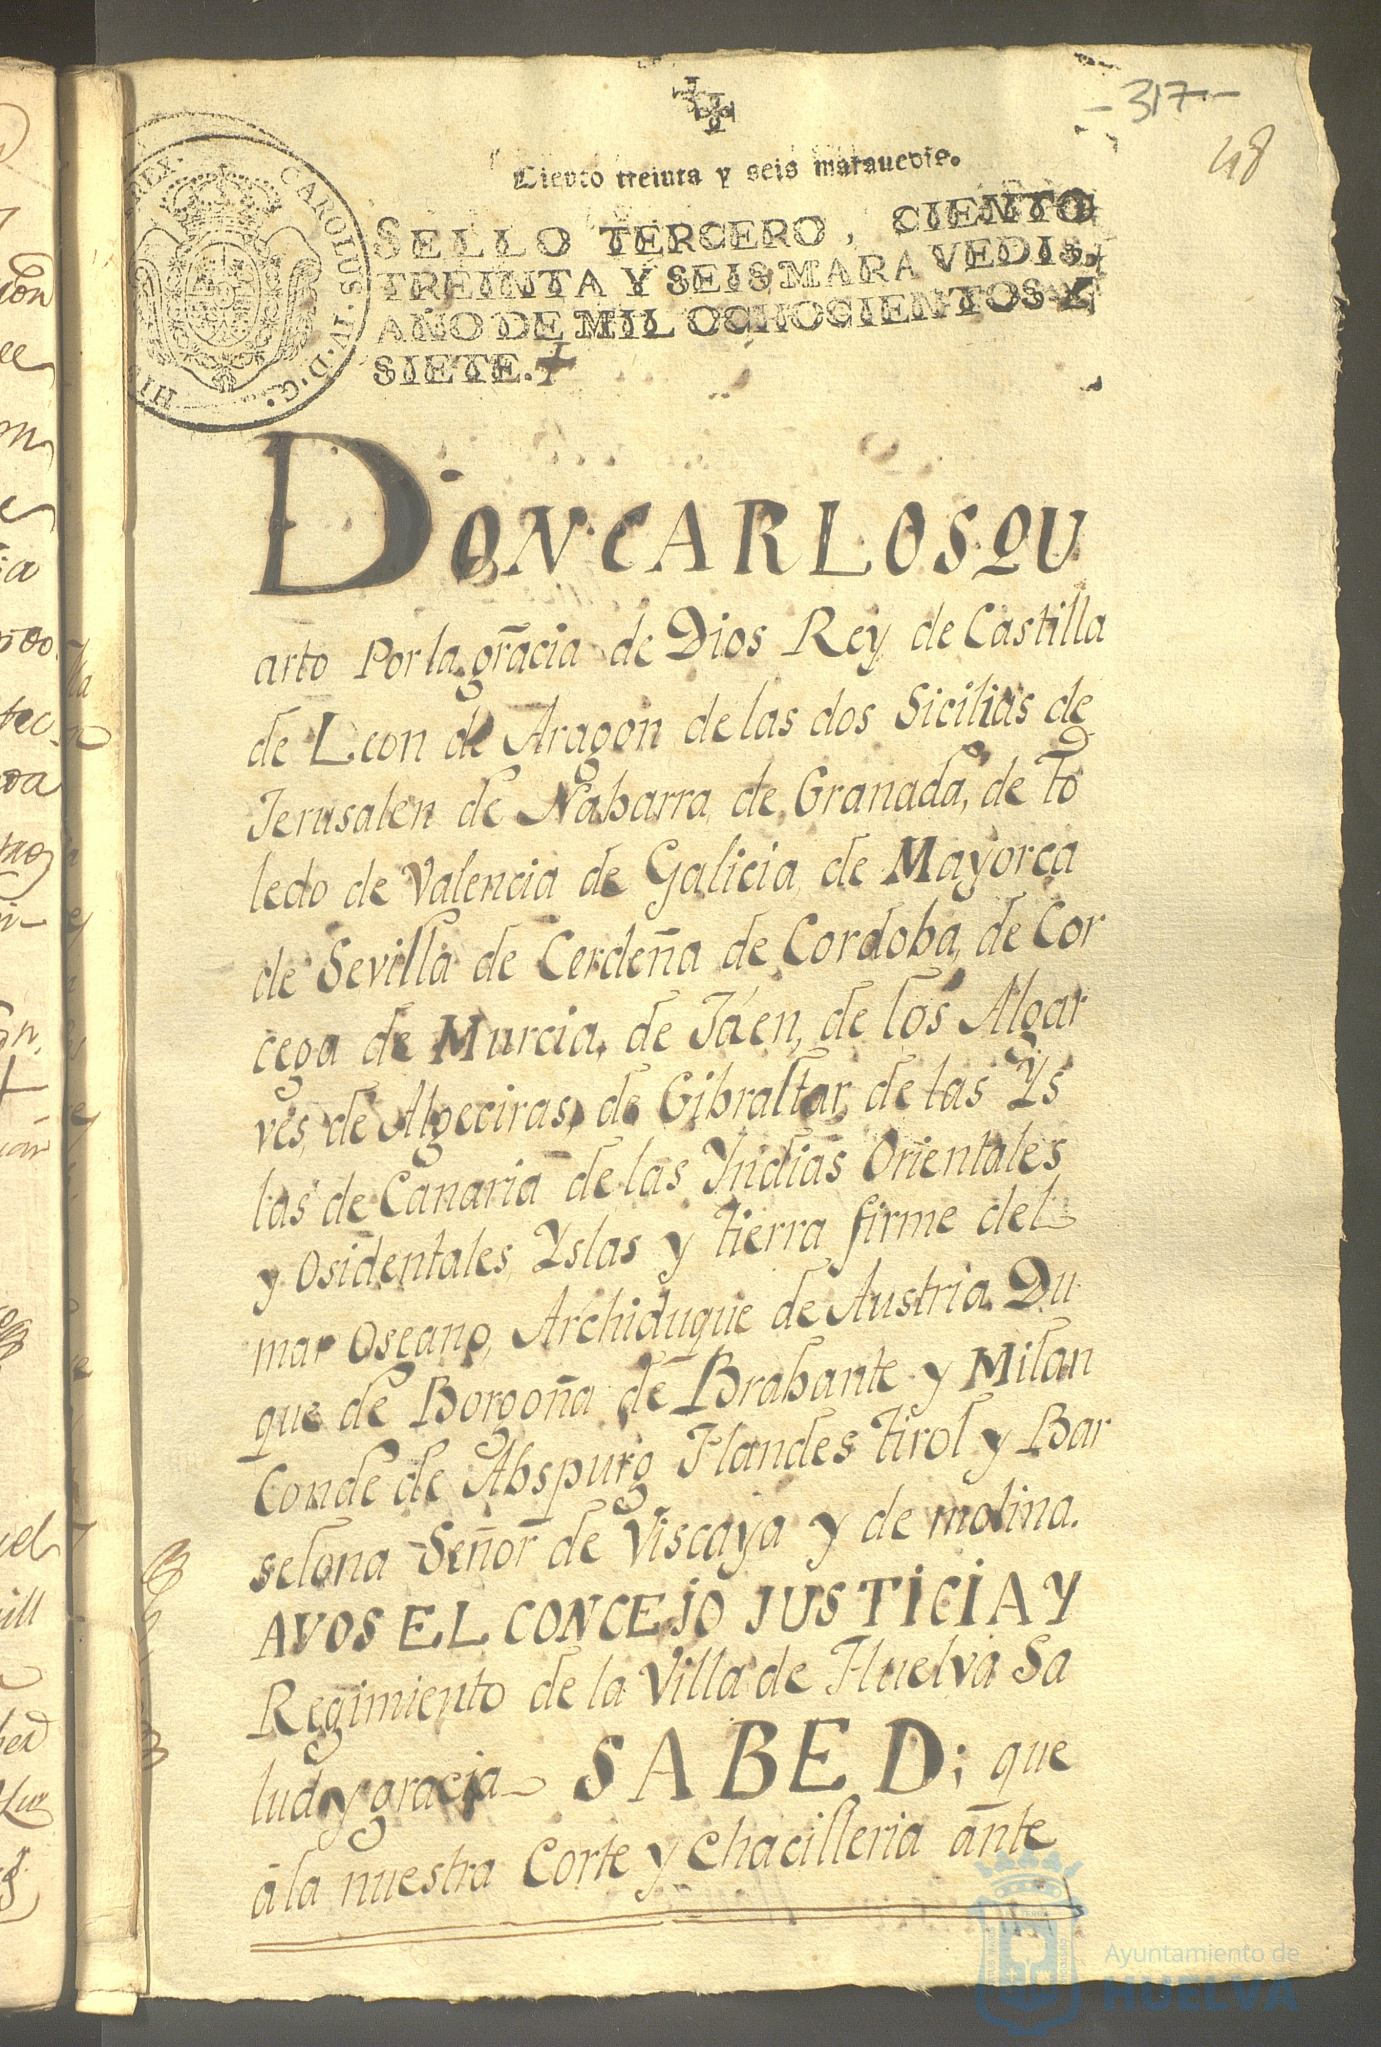 -317-
48
Ciento treinta y seis marauedis.
SELLO TERCERO, CIENTO
TREINTA Y SEIS MARAVEDIS,
AÑO DE MIL OCHOCIENTOS Y
SIETE.
CAROLUS · IV · D · G ·
REX ·
DON CARLOS QU
arto Por la grãcia de Dios Rey de Castilla
de Leon de Aragon de las dos Sicilias de
Jerusalen de Nabarra, de Granada, de To
ledo de Valencia de Galicia, de Mayorca
de Sevilla de Cerdeña de Cordoba, de Cor
cega de Murcia, de Jáen, de los Algar
ves, de Algeciras, de Gibraltar, de las Ys
las de Canaria de las Yndias Orientales
y Osidentales, Yslas y tierra firme del
mar Oseano, Archiduque de Austria Du
que de Borgoña de Brabante y Milan
Conde de Abspurg Flandes tirol y Bar
selona Señor de Viscaya y de molina.
AVOS EL CONCEJO JUSTICIA Y
Regimiento de la Villa de Huelva Sa
lud y gracia SABED; que
a la nuestra Corte y Chacilleria ante
Ayuntamiento de
HUELVA